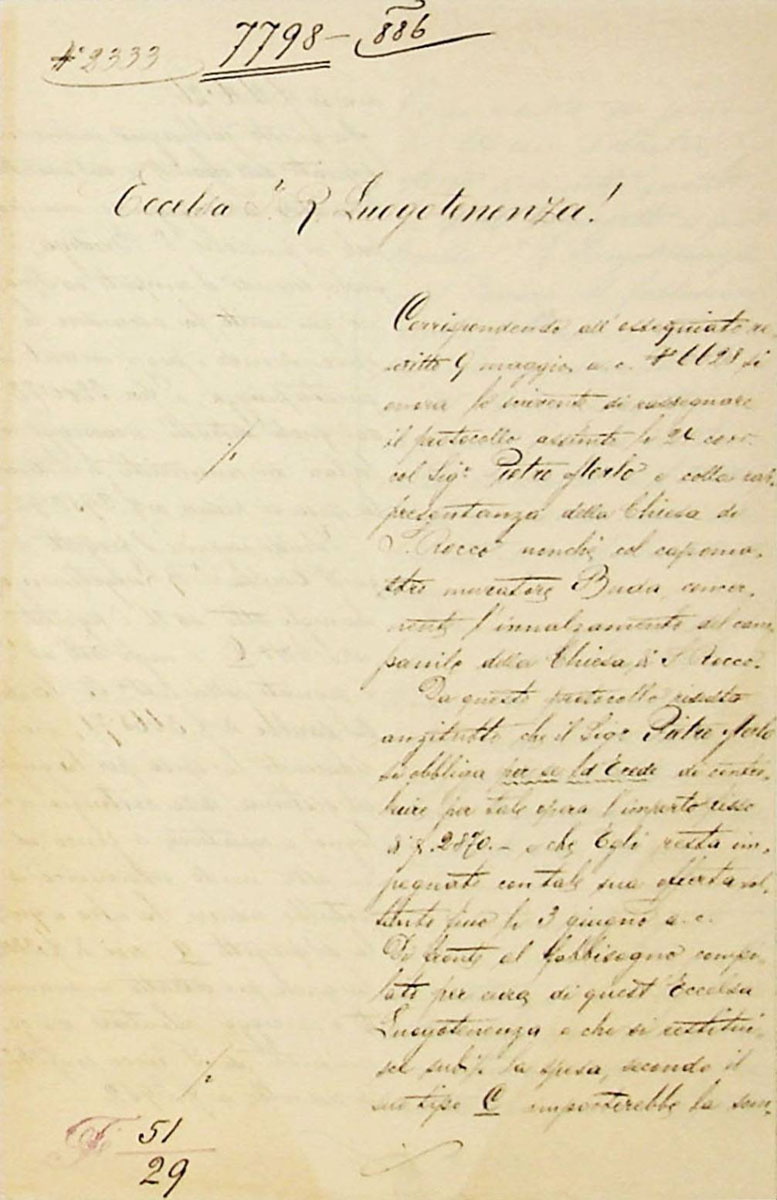 N° 2333
7798 — 886
Eccelsa I. R. Luogotenenza!
Corrispondendo all' ossequiato re,
scritto 9 maggio a. c. N° 6628 si
onora lo scrivente di rassegnare
il protocollo assunto li 24 corr.
col Sigr Pietro Merlo e colla rap,
presentanza della Chiesa di
S. Rocco nonchè col capoma,
stro muratore Buda, concer,
nente l'innalzamento del cam,
panile della Chiesa di S. Rocco.
Da questo protocollo risulta
anzitutto che il Sigr Pietro Merlo
si obbliga per se ed Erede di contri,
buire per tale opera l'importo fisso
di f. 2870.— e che Egli resta im,
pegnato con tale sua offerta sol,
tanto fino li 3 giugno a. c.
Di fronte al fabbisogno compi,
lato per cura di quest' Eccelsa
Luogotenenza e che si restitui,
sce sub /. la spesa, secondo il
suo tipo C importerebbe la som,
51
29